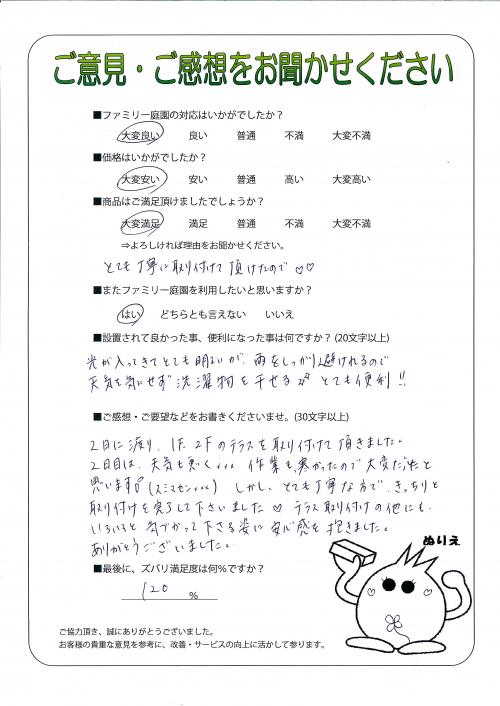 ご意見・ご感想をお聞かせください
■ファミリー庭園の対応はいかがでしたか？
大変良い 良い 普通 不満 大変不満
■価格はいかがでしたか？
大変安い 安い 普通 高い 大変高い
■商品はご満足頂けましたでしょうか？
大変満足 満足 普通 不満 大変不満
⇒よろしければ理由をお聞かせください。
とても丁寧に取り付けて頂けたので♡♡
■またファミリー庭園を利用したいと思いますか？
はい どちらとも言えない いいえ
■設置されて良かった事、便利になった事は何ですか？(20文字以上)
光が入ってきてとても明るいが、雨をしっかり避けれるので
天気を気にせず洗濯物を干せるが とても便利!!
■ご感想・ご要望などをお書きくださいませ。(30文字以上)
2日に渡り、1F、2Fのテラスを取り付けて頂きました。
2日目は、天気も悪く… 作業も寒かったので大変だったと
思います (スミマセン…) しかし、とても丁寧な方で、きっちりと
取り付けを完了して下さいました♡ テラス取り付けの他にも、
いろいろと気づかって下さる姿に安心感を抱きました。
ありがとうございました。
■最後に、ズバリ満足度は何%ですか？
120 %
ぬりえ
ご協力頂き、誠にありがとうございました。
お客様の貴重な意見を参考に、改善・サービスの向上に活かして参ります。